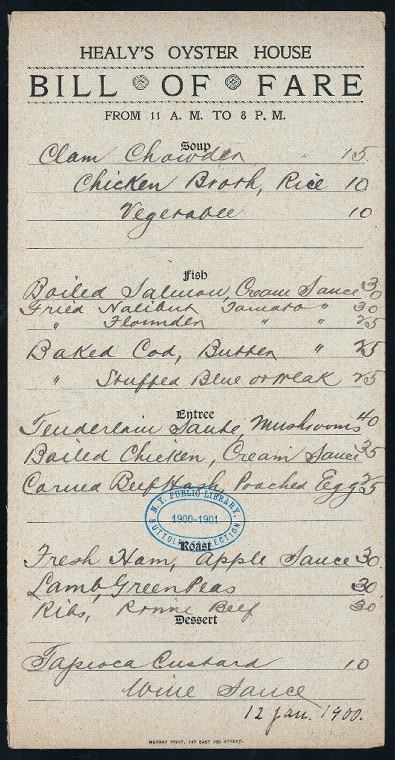 HEALY'S OYSTER HOUSE
BILL OF FARE
FROM 11 A. M. TO 8 P. M.
Soup
Clam Chowder 15
Chicken Broth, Rice 10
Vegetable 10
Fish
Boiled Salmon, Cream Sauce 30
Fried Halibut, Tomato " 30
" Flounder " " 25
Baked Cod, Butter " 25
" Stuffed Blue or Weak 25
Entree
Tenderloin Saute, Mushrooms 40
Boiled Chicken, Cream Sauce 35
Corned Beef Hash, Poached Egg 25
N.Y. PUBLIC LIBRARY,
1900-1901
BUTTOLPH COLLECTION
Roast
Fresh Ham, Apple Sauce 30
Lamb, Green Peas 30
Ribs, Beef 30
Dessert
Tapioca Custard 10
Wine Sauce
12 Jan. 1900.
MURRAY PRINT, 147 EAST 23D STREET.